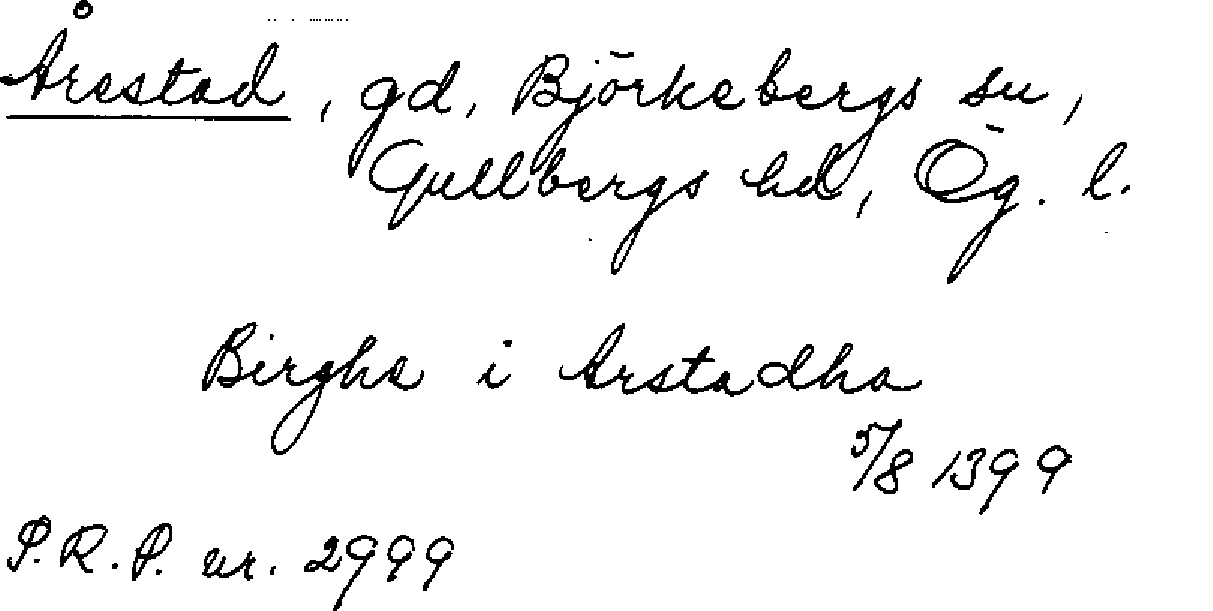 Årestad, gd, Björkebergs sn,
Gullbergs hd, Ög. l.
Birghe i Arstadha
5/8 1399
P.R.P. nr. 2999